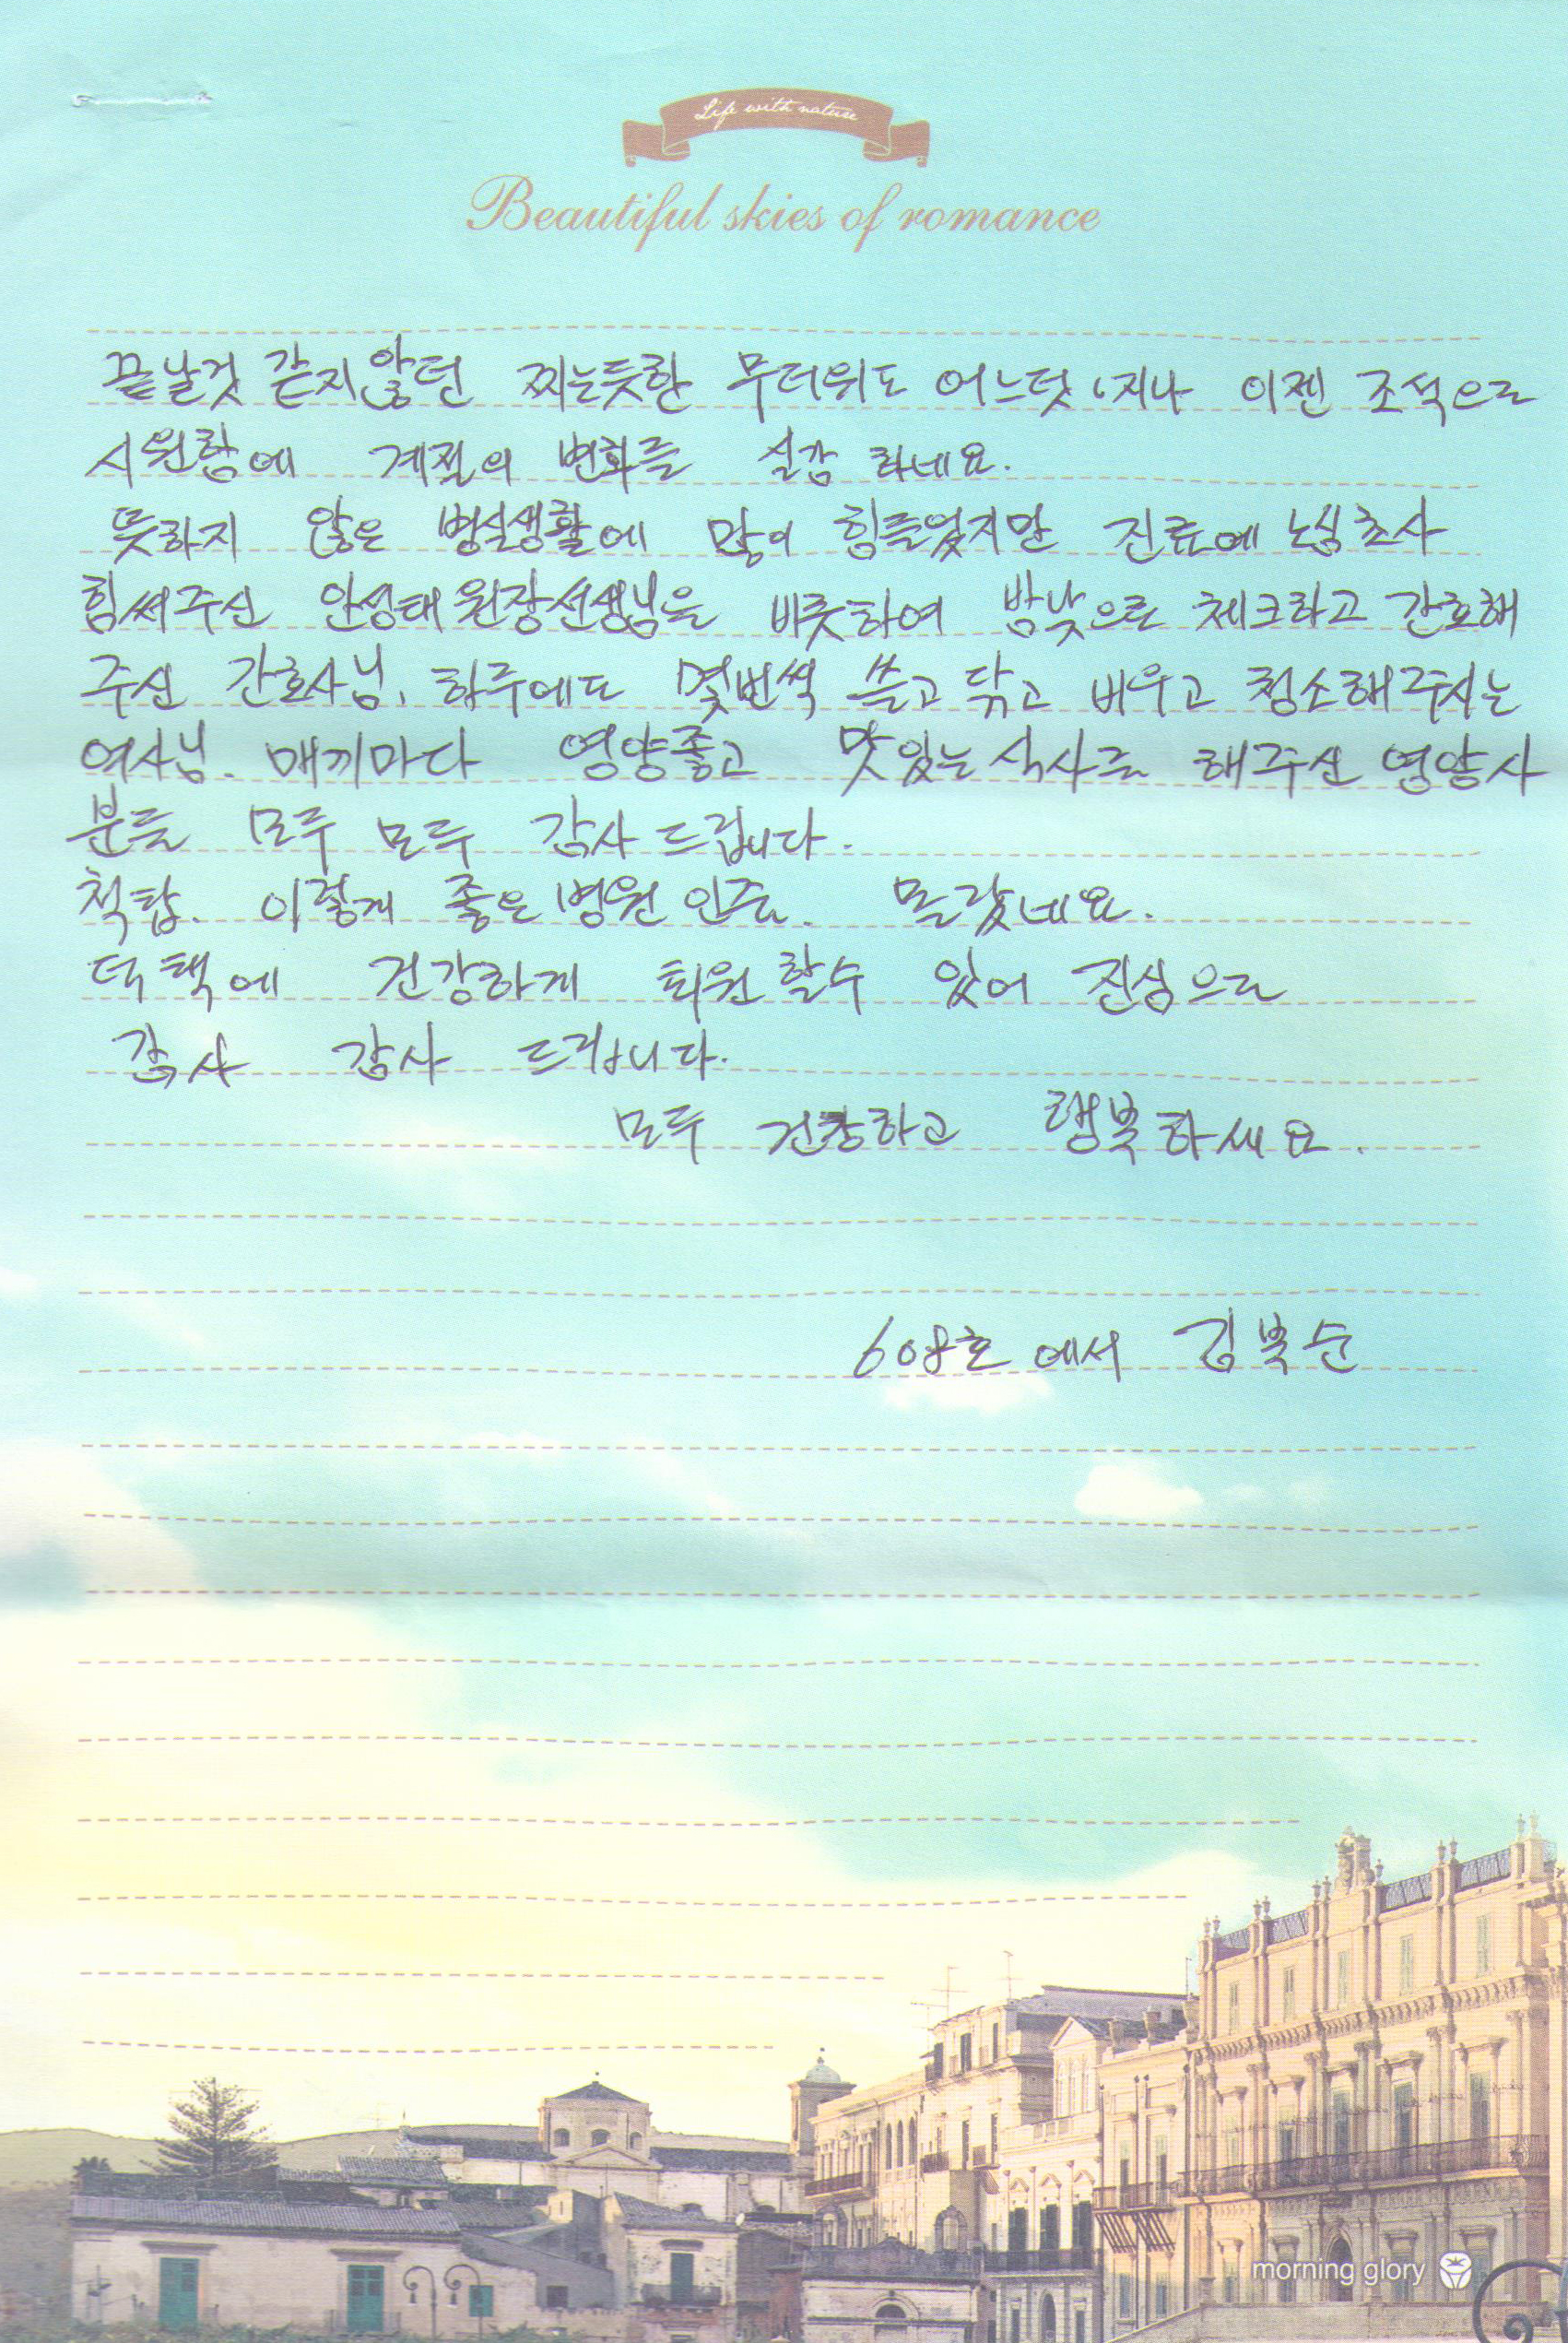 Life with nature
Beautiful skies of romance
끝날것 같지않던 찌는듯한 무더위도 어느덧 지나 이젠 조석으로
시원함에 계절의 변화를 실감 하네요.
뜻하지 않은 병실생활에 많이 힘들었지만 진료에 노심초사
힘써주신 안성태 원장선생님을 비롯하여 밤낮으로 체크하고 간호해
주신 간호사님, 하루에도 몇번씩 쓸고 닦고 비우고 청소해주시는
여사님. 매끼마다 영양좋고 맛있는 식사를 해주신 영양사
분들 모두 모두 감사 드립니다.
척탑. 이렇게 좋은 병원 인줄. 몰랐네요.
덕택에 건강하게 퇴원 할수 있어 진심으로
감사 감사 드립니다.
모두 건강하고 행복하세요.
608호 에서 김복순
morning glory